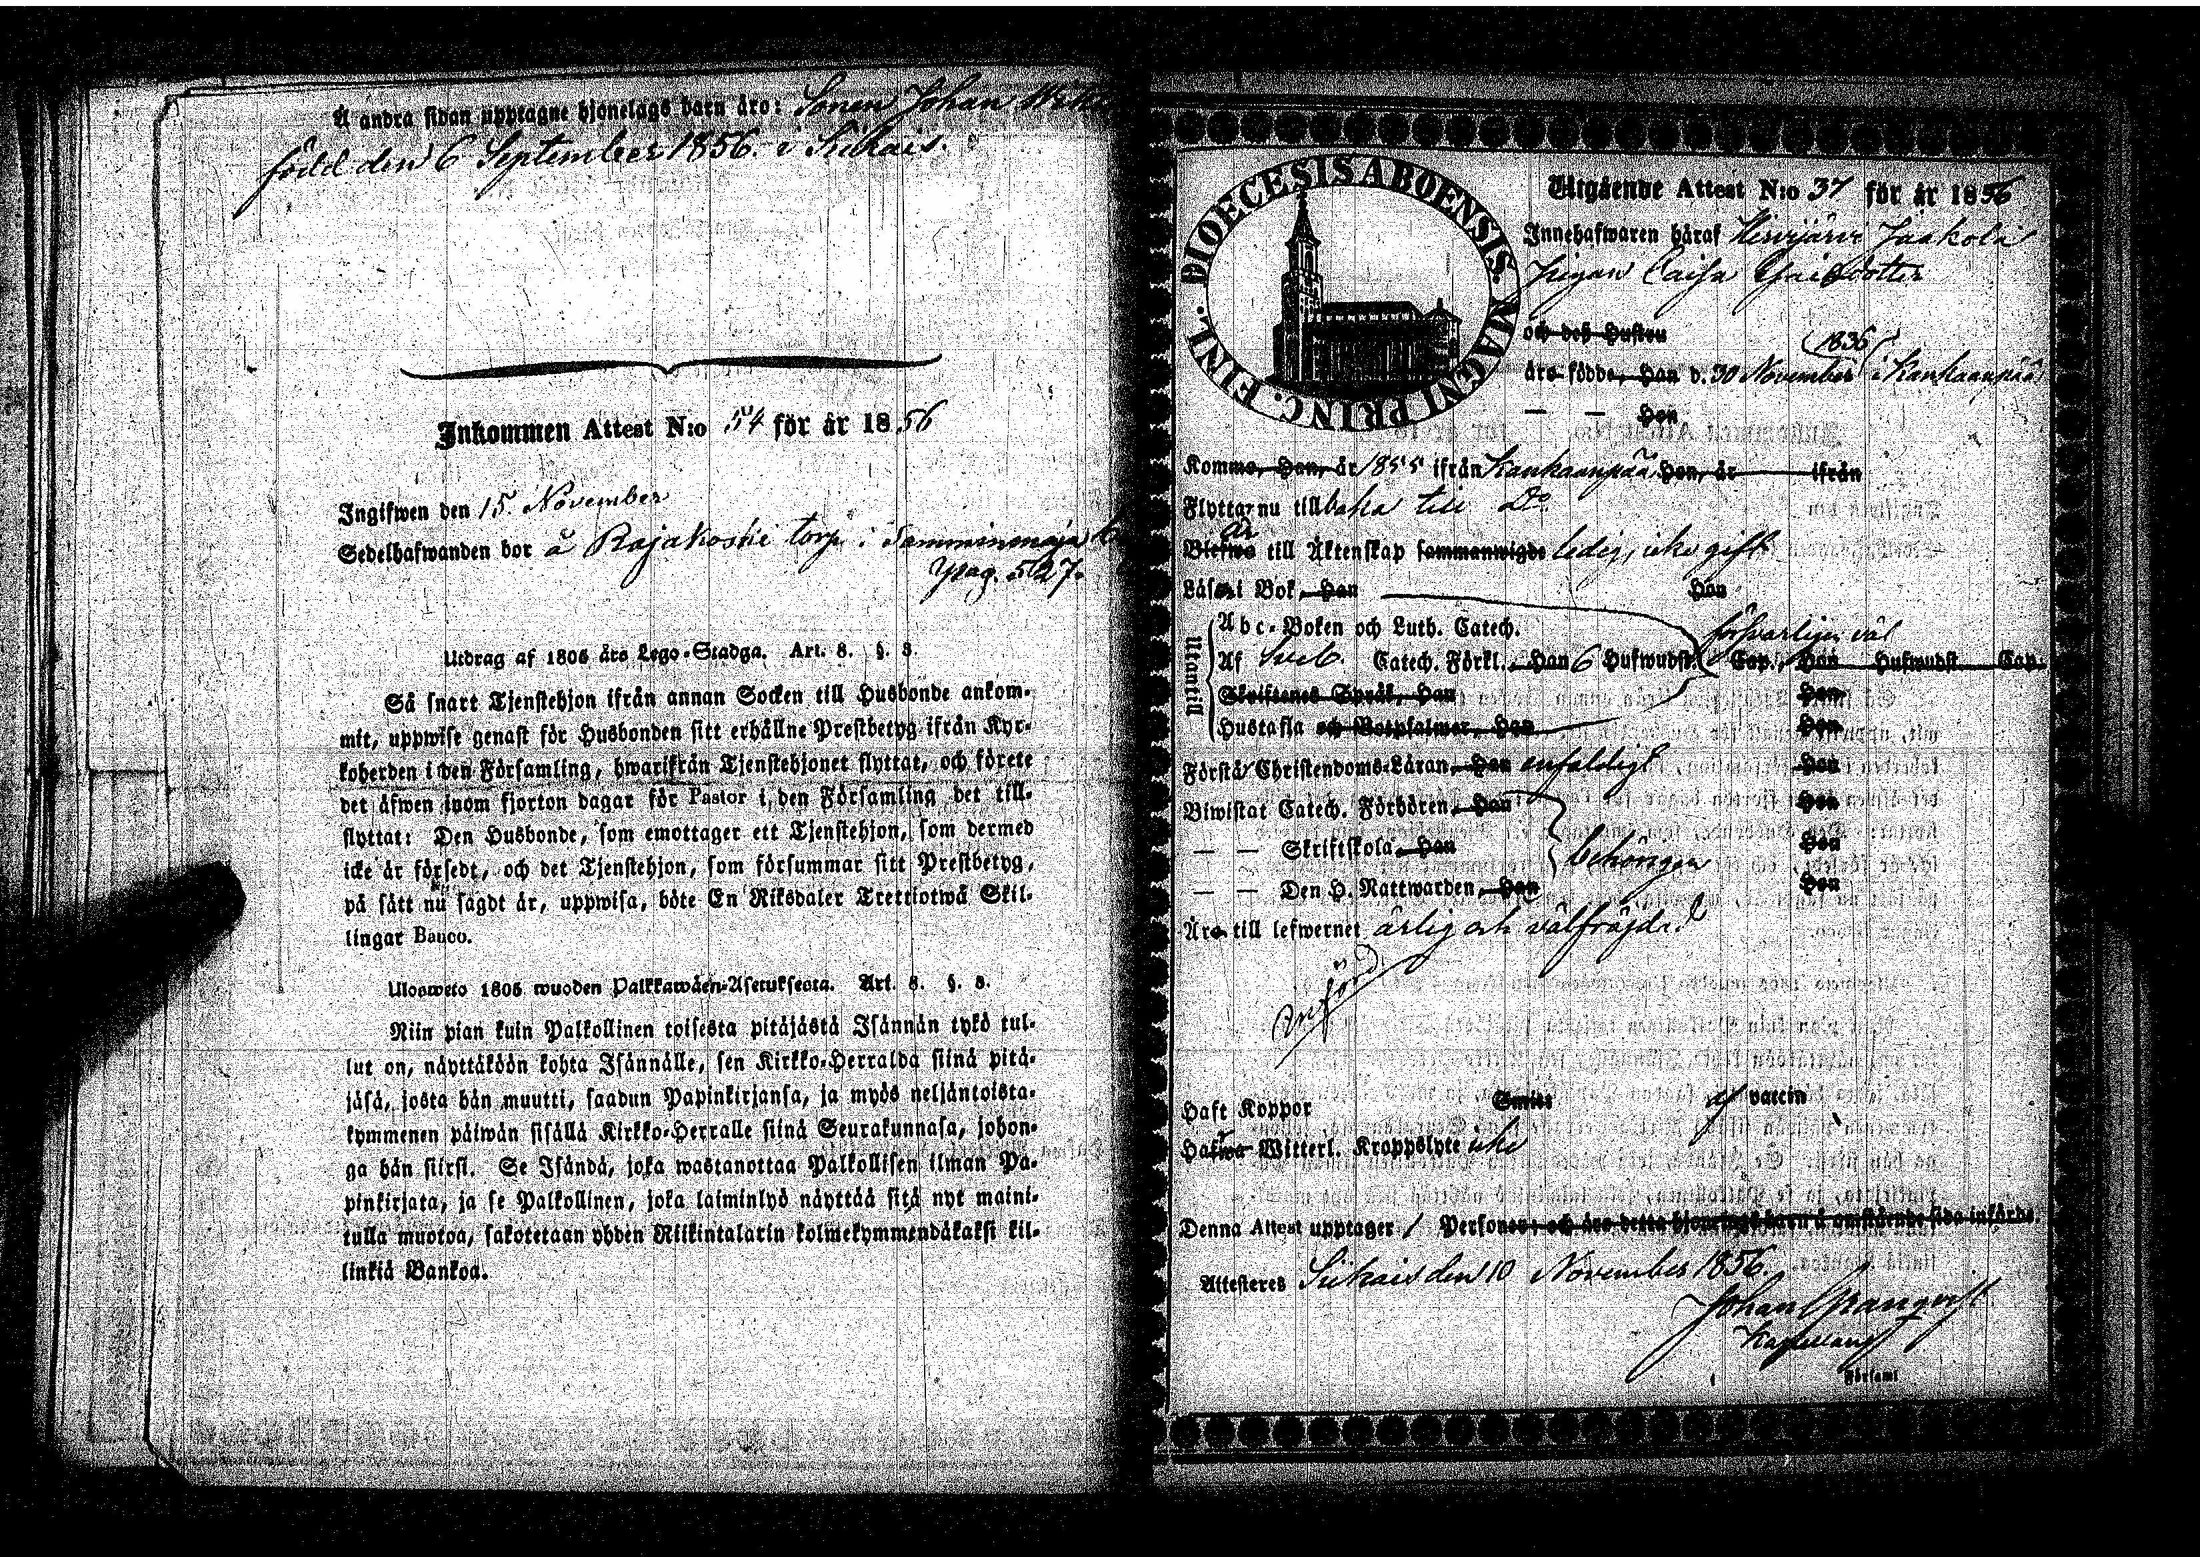 Å andra sidan upptagne hjonelags barn äro: Sonen Johan
född den 6 September 1856. i Siikais.
Inkommen Attest N:o 54 för år 1856
Ingifwen den 15. November
Sedelhafwanden bor å Rajakoski torp i Samminmaja
Pag. 527.
Utdrag af 1805 års Lego-Stadga. Art. 8. §. 8.
Så snart Tjenstehjon ifrån annan Socken till Husbonde ankom-
mit, uppwise genast för Husbonden sitt erhållne Prestbetyg ifrån Kyr-
koherden i den Församling, hwarifrån Tjenstehjonet flyttat, och förete
det äfwen inom fjorton dagar för Pastor i den Församling det till-
flyttat: Den Husbonde, som emottager ett Tjenstehjon, som dermed
icke är försedt, och det Tjenstehjon, som försummar sitt Prestbetyg,
på sätt nu sagdt är, uppwisa, böte En Riksdaler Trettiotwå Skil-
lingar Banco.
Ulosweto 1805 wuoden Palkkawäen-Asetuksesta. Art. 8. §. 8.
Niin pian kuin Palkollinen toisesta pitäjästä Isännän tykö tul-
lut on, näyttäköön kohta Isännälle, sen Kirkko-Herralda siinä pitä-
jäsä, josta hän muutti, saadun Papinkirjansa, ja myös neljäntoista-
kymmenen päiwän sisällä Kirkko-Herralle siinä Seurakunnasa, johon-
ga hän siirsi. Se Isändä, joka wastanottaa Palkollisen ilman Pa-
pinkirjata, ja se Palkollinen, joka laiminlyö näyttää sitä nyt maini-
tulla muotoa, sakotetaan yhden Riikintalarin kolmekymmendäkaksi kil-
linkiä Bankoa.
DIOECESIS ABOENSIS. MAGNI PRINC. FINL.
Utgående Attest N:o 37 för år 1856
Innehafwaren häraf Hirvijärvi Jaakola
Pigan Caisa
och deß Hustru
1836
äro födde, Han d. 30 November i Kankaanpää
— — Hon
Komme, Han, år 1855 ifrån Kankaanpää, Hon, år ifrån
Flyttar nu tillbaka till Do
är
Blefwo till Äktenskap sammanwigde ledig, icke gift
Läser i Bok, Han Hon
Utantill
Abc-Boken och Luth. Catech. försvarligen väl
Af Sveb. Catech. Förkl. Han 6 Hufwudst. Cap., Hon Hufwudst. Cap.
Skriftenes Språk, Han Hon
Hustafla och Botpsalmer, Han Hon
Förstå Christendoms-Läran, Han enfaldigt Hon
Biwistat Catech. Förhören, Han Hon
— — Skriftskola, Han behörigen Hon
— — Den H. Nattwarden, Han Hon
Äro till lefwernet ärlig och välfräjdad
införd
Haft Koppor Smitt af vaccin
Hafwa Witterl. Kroppslyte icke
Denna Attest upptager 1 Personer; och äro detta hjonelags barn å omstående sida införde.
Attesteres Siikais den 10 November 1856.
Johan Granqvist
Kapellan
Församl